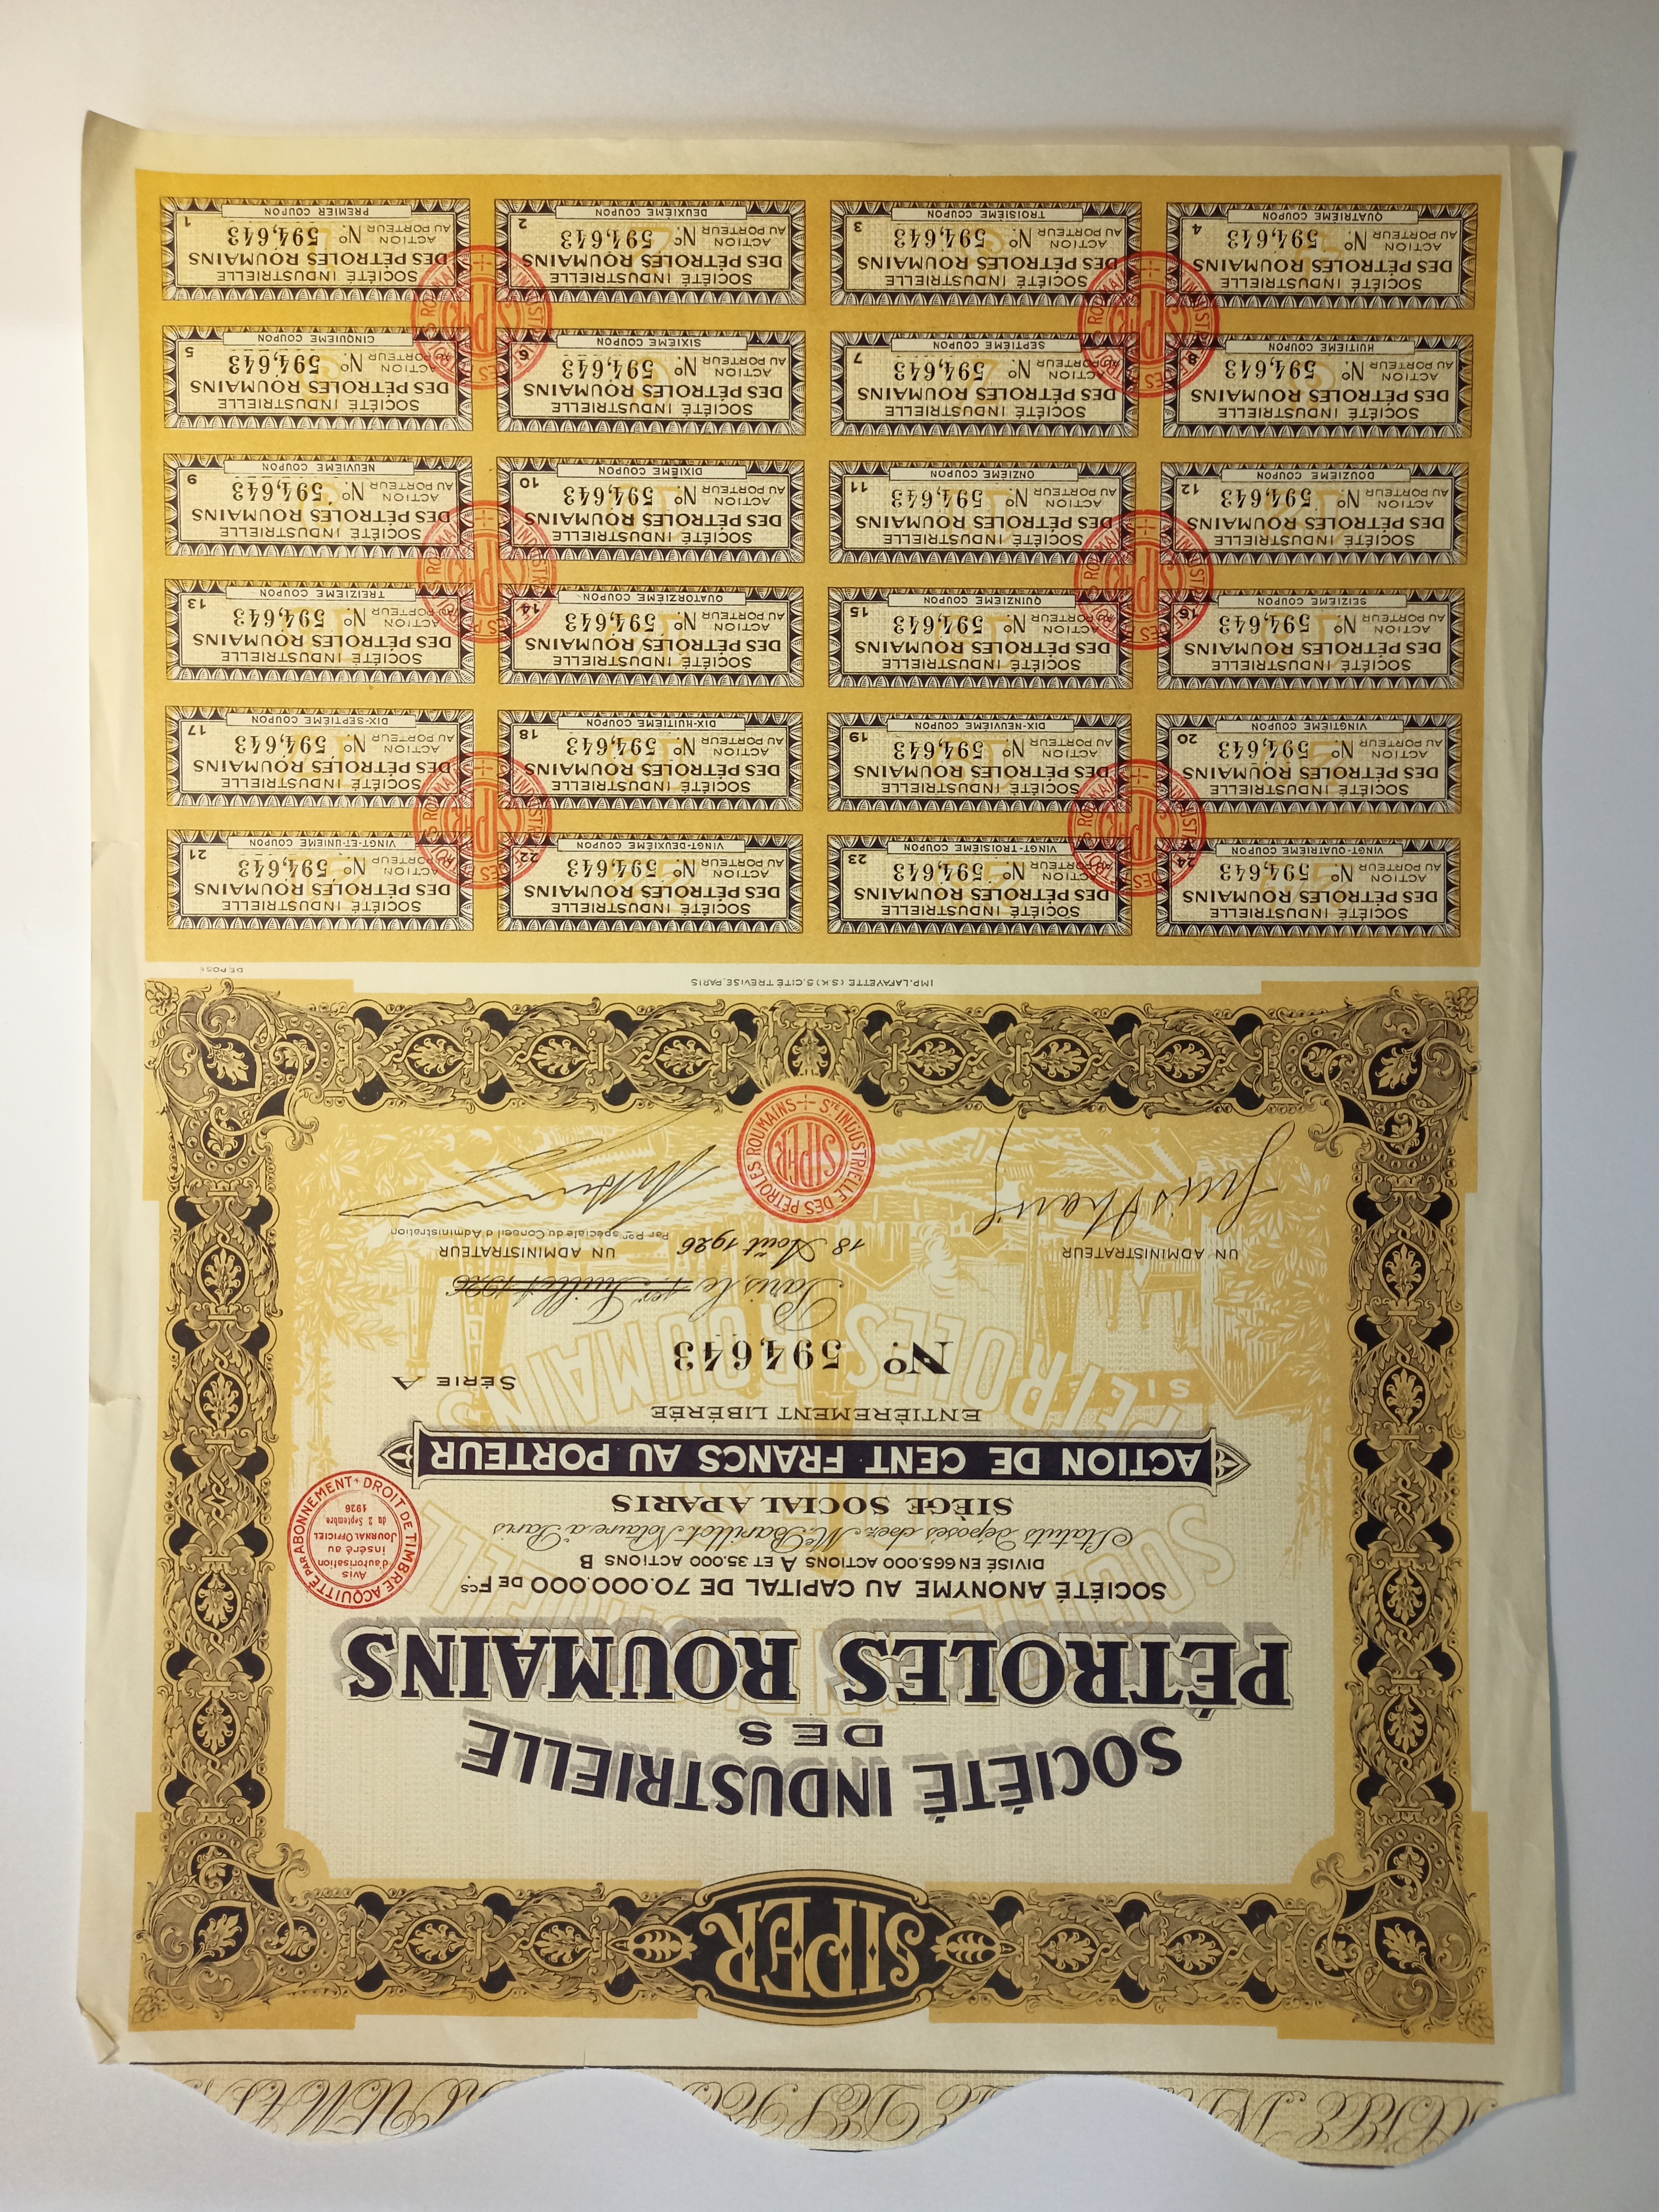 SIPER
SOCIÉTÉ INDUSTRIELLE
DES
PÉTROLES ROUMAINS
SOCIÉTÉ ANONYME AU CAPITAL DE 70.000.000 DE Fcs
DIVISÉ EN 665.000 ACTIONS A ET 35.000 ACTIONS B
Statuts déposés chez Me Barillot Notaire à Paris
SIÈGE SOCIAL A PARIS
DROIT DE TIMBRE ACQUITTÉ PAR ABONNEMENT
Avis
d'autorisation
inséré au
JOURNAL OFFICIEL
du 2 Septembre
1926
ACTION DE CENT FRANCS AU PORTEUR
ENTIÈREMENT LIBÉRÉE
SÉRIE A
No. 594,643
Paris le 1er Juillet 1926
18 Août 1926
UN ADMINISTRATEUR
UN ADMINISTRATEUR
Par Pon spéciale du Conseil d'Administration
STE INDUSTRIELLE DES PÉTROLES ROUMAINS
SIPER
IMP. LAFAYETTE (S.K) 5, CITÉ TRÉVISE, PARIS
DÉPOSÉ
SOCIÉTÉ INDUSTRIELLE
DES PÉTROLES ROUMAINS
ACTION
AU PORTEUR No. 594,643
VINGT-QUATRIÈME COUPON
24
SOCIÉTÉ INDUSTRIELLE
DES PÉTROLES ROUMAINS
ACTION
AU PORTEUR No. 594,643
VINGT-TROISIÈME COUPON
23
SOCIÉTÉ INDUSTRIELLE
DES PÉTROLES ROUMAINS
ACTION
AU PORTEUR No. 594,643
VINGT-DEUXIÈME COUPON
22
SOCIÉTÉ INDUSTRIELLE
DES PÉTROLES ROUMAINS
ACTION
AU PORTEUR No. 594,643
VINGT-ET-UNIÈME COUPON
21
SOCIÉTÉ INDUSTRIELLE
DES PÉTROLES ROUMAINS
ACTION
AU PORTEUR No. 594,643
VINGTIÈME COUPON
20
SOCIÉTÉ INDUSTRIELLE
DES PÉTROLES ROUMAINS
ACTION
AU PORTEUR No. 594,643
DIX-NEUVIÈME COUPON
19
SOCIÉTÉ INDUSTRIELLE
DES PÉTROLES ROUMAINS
ACTION
AU PORTEUR No. 594,643
DIX-HUITIÈME COUPON
18
SOCIÉTÉ INDUSTRIELLE
DES PÉTROLES ROUMAINS
ACTION
AU PORTEUR No. 594,643
DIX-SEPTIÈME COUPON
17
SOCIÉTÉ INDUSTRIELLE
DES PÉTROLES ROUMAINS
ACTION
AU PORTEUR No. 594,643
SEIZIÈME COUPON
16
SOCIÉTÉ INDUSTRIELLE
DES PÉTROLES ROUMAINS
ACTION
AU PORTEUR No. 594,643
QUINZIÈME COUPON
15
SOCIÉTÉ INDUSTRIELLE
DES PÉTROLES ROUMAINS
ACTION
AU PORTEUR No. 594,643
QUATORZIÈME COUPON
14
SOCIÉTÉ INDUSTRIELLE
DES PÉTROLES ROUMAINS
ACTION
AU PORTEUR No. 594,643
TREIZIÈME COUPON
13
SOCIÉTÉ INDUSTRIELLE
DES PÉTROLES ROUMAINS
ACTION
AU PORTEUR No. 594,643
DOUZIÈME COUPON
12
SOCIÉTÉ INDUSTRIELLE
DES PÉTROLES ROUMAINS
ACTION
AU PORTEUR No. 594,643
ONZIÈME COUPON
11
SOCIÉTÉ INDUSTRIELLE
DES PÉTROLES ROUMAINS
ACTION
AU PORTEUR No. 594,643
DIXIÈME COUPON
10
SOCIÉTÉ INDUSTRIELLE
DES PÉTROLES ROUMAINS
ACTION
AU PORTEUR No. 594,643
NEUVIÈME COUPON
9
SOCIÉTÉ INDUSTRIELLE
DES PÉTROLES ROUMAINS
ACTION
AU PORTEUR No. 594,643
HUITIÈME COUPON
8
SOCIÉTÉ INDUSTRIELLE
DES PÉTROLES ROUMAINS
ACTION
AU PORTEUR No. 594,643
SEPTIÈME COUPON
7
SOCIÉTÉ INDUSTRIELLE
DES PÉTROLES ROUMAINS
ACTION
AU PORTEUR No. 594,643
SIXIÈME COUPON
6
SOCIÉTÉ INDUSTRIELLE
DES PÉTROLES ROUMAINS
ACTION
AU PORTEUR No. 594,643
CINQUIÈME COUPON
5
SOCIÉTÉ INDUSTRIELLE
DES PÉTROLES ROUMAINS
ACTION
AU PORTEUR No. 594,643
QUATRIÈME COUPON
4
SOCIÉTÉ INDUSTRIELLE
DES PÉTROLES ROUMAINS
ACTION
AU PORTEUR No. 594,643
TROISIÈME COUPON
3
SOCIÉTÉ INDUSTRIELLE
DES PÉTROLES ROUMAINS
ACTION
AU PORTEUR No. 594,643
DEUXIÈME COUPON
2
SOCIÉTÉ INDUSTRIELLE
DES PÉTROLES ROUMAINS
ACTION
AU PORTEUR No. 594,643
PREMIER COUPON
1